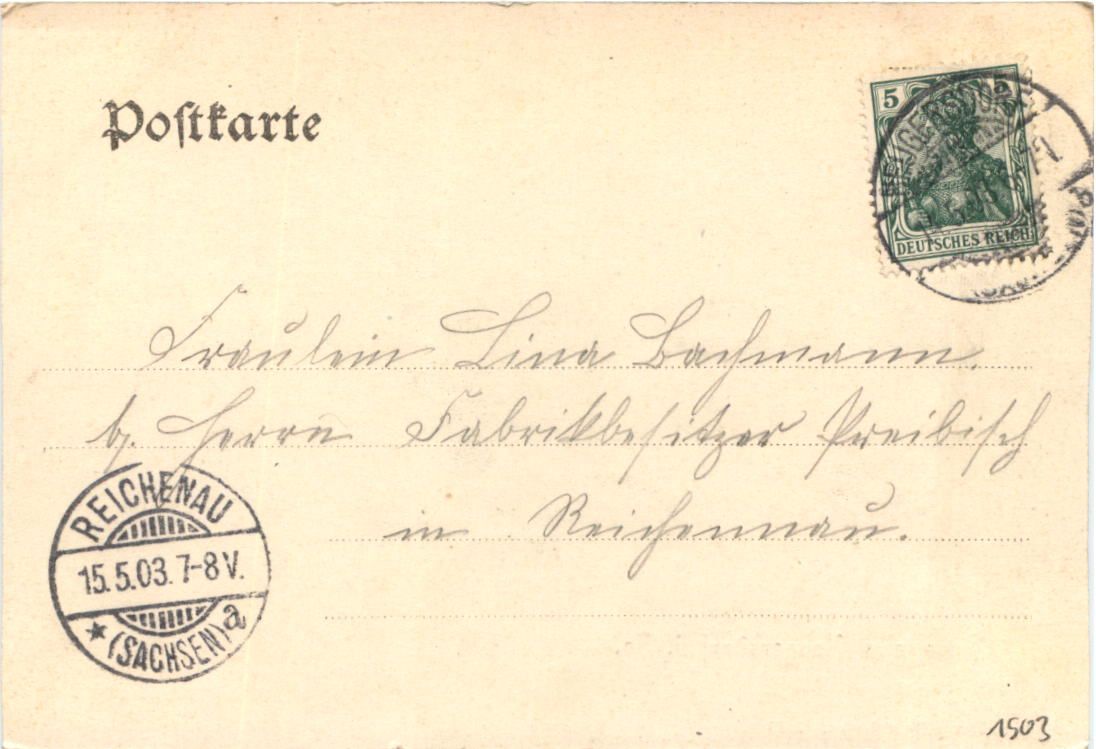 Postkarte
5 5
DEUTSCHES REICH
Fräulein Lina Bachmann.
b. Herrn Fabrikbesitzer Preibisch
in Reichennau.
REICHENAU
15.5.03. 7-8 V.
(SACHSEN) a
1503